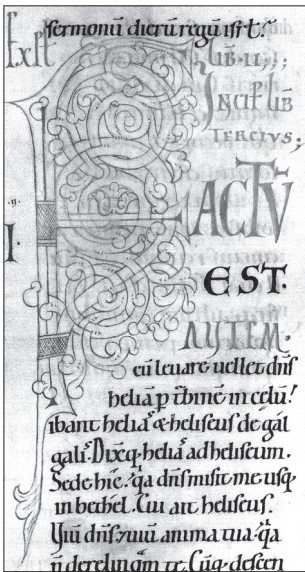 sermonū dierū regū isrł?
LIB· II;
INCIP LIB
TERCIVS;
FACTŪ
EST·
AUTEM·
cū levare vellet dn̄s
heliā p turbinē in celū!
ibant helias & heliseus de gal
galis. Dixitq; helias ad heliseum.
Sede hic. qa dn̄s misit me usq;
in bethel. Cui ait heliseus.
Vivit dn̄s & vivit anima tua. qa
n̄ derelinquam te. Cūq; descen